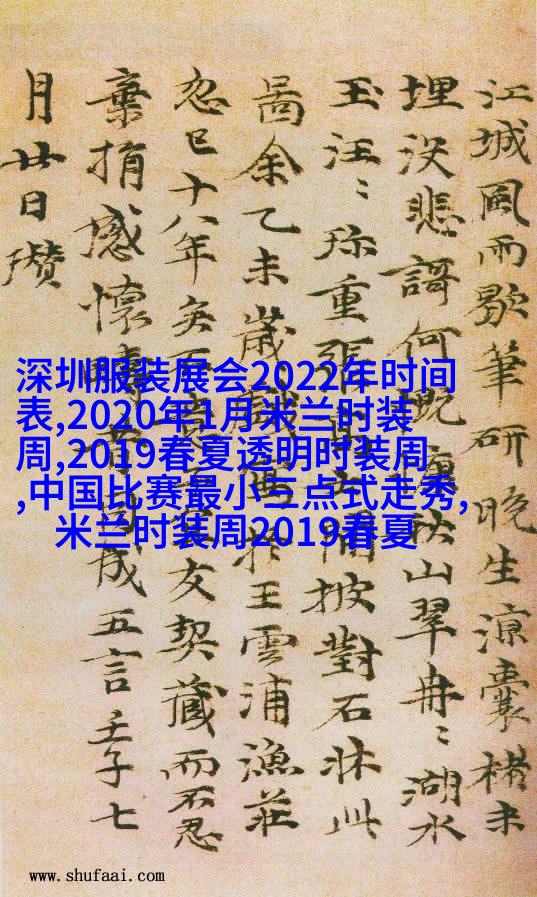 江城風雨歇筆研晚生涼囊楮未
埋没悲謌何慨慷秋山翠冉〻湖水
玉汪〻珎重張士閑披對石牀此
啚余乙未歲戲於王雲浦漁莊
忽已十八年矣不友契藏而不忍
棄捐感懷疇昔成五言壬子七
月廿日瓚
深圳服装展会2022年时间
表,2020年1月米兰时装
周,2019春夏透明时装周
,中国比赛最小三点式走秀,
米兰时装周2019春夏
www.shufaai.com